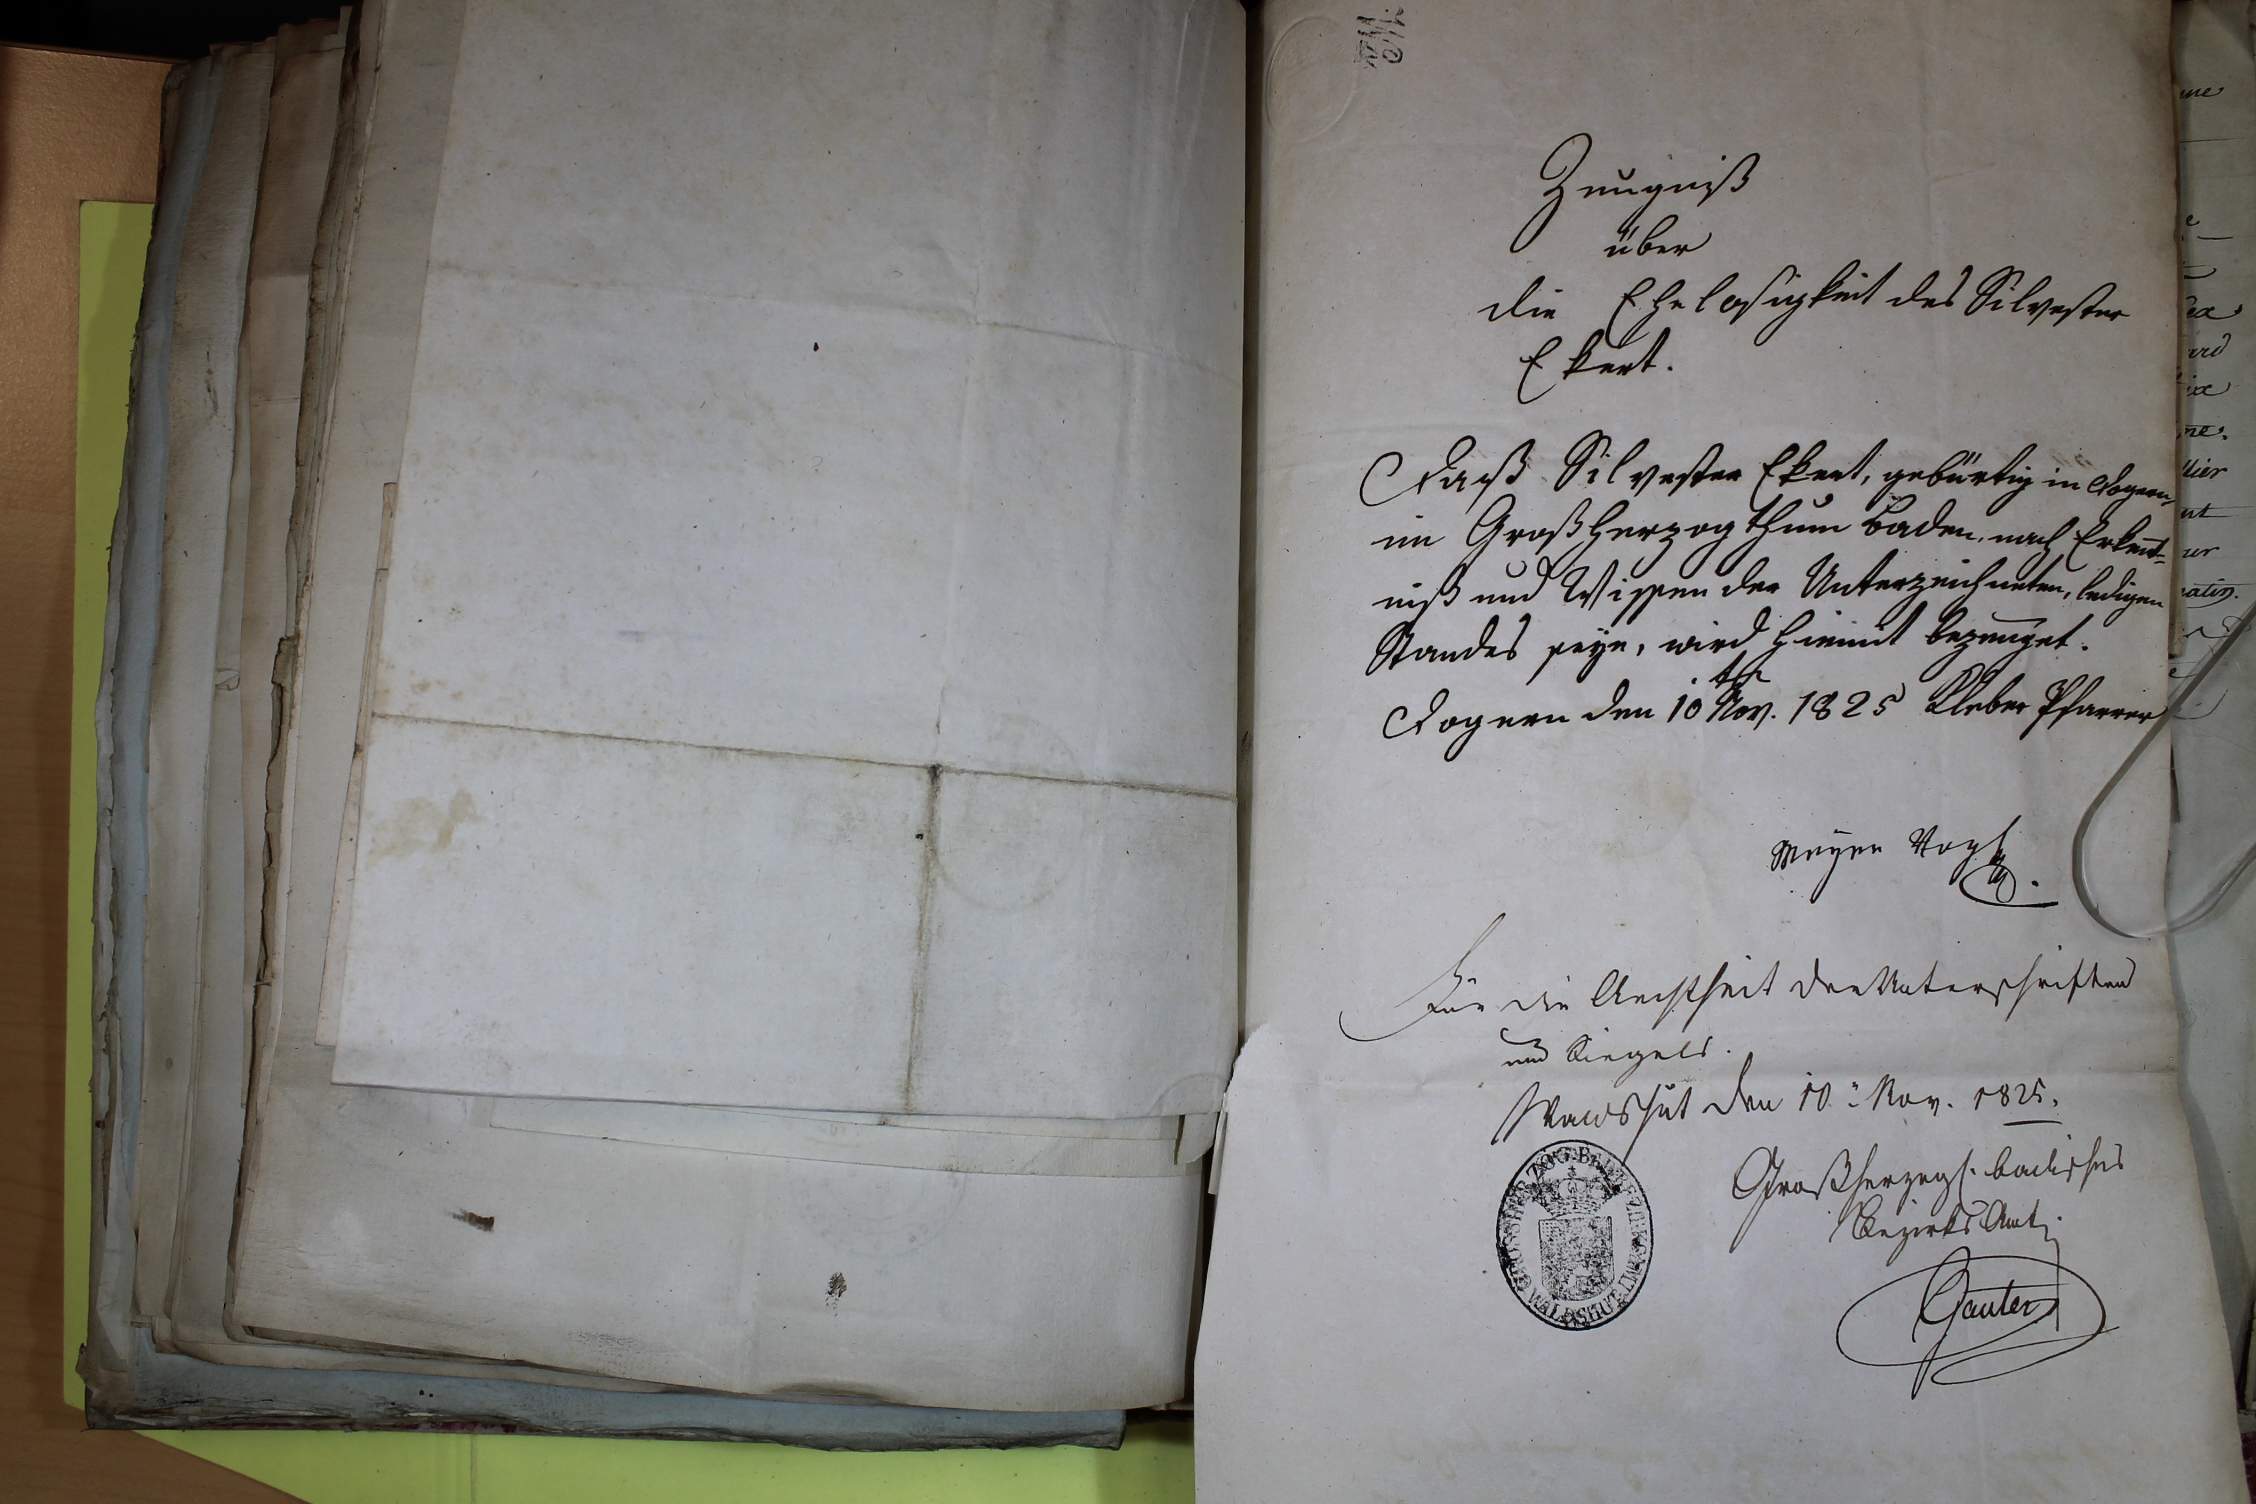 Zeugniß
über
die Ehelosigkeit des Silvester
Ekert.
Daß Silvester Ekert, gebürtig in Dogern,
im Großherzogthum Baden, nach Erkent-
niß und Wissen der Unterzeichneten, ledigen
Standes seye, wird hiemit bezeuget.
Dogern den 10 Nov. 1825 Kleber Pfarrer
Meyer Vogt
Für die Aechtheit der Unterschriften
und Siegels.
Waldshut den 10. Nov. 1825.
Großherzogl. badisches
Bezirks Amt
GROSSHERZOG. BAD. BEZIRKSAMT WALDSHUT